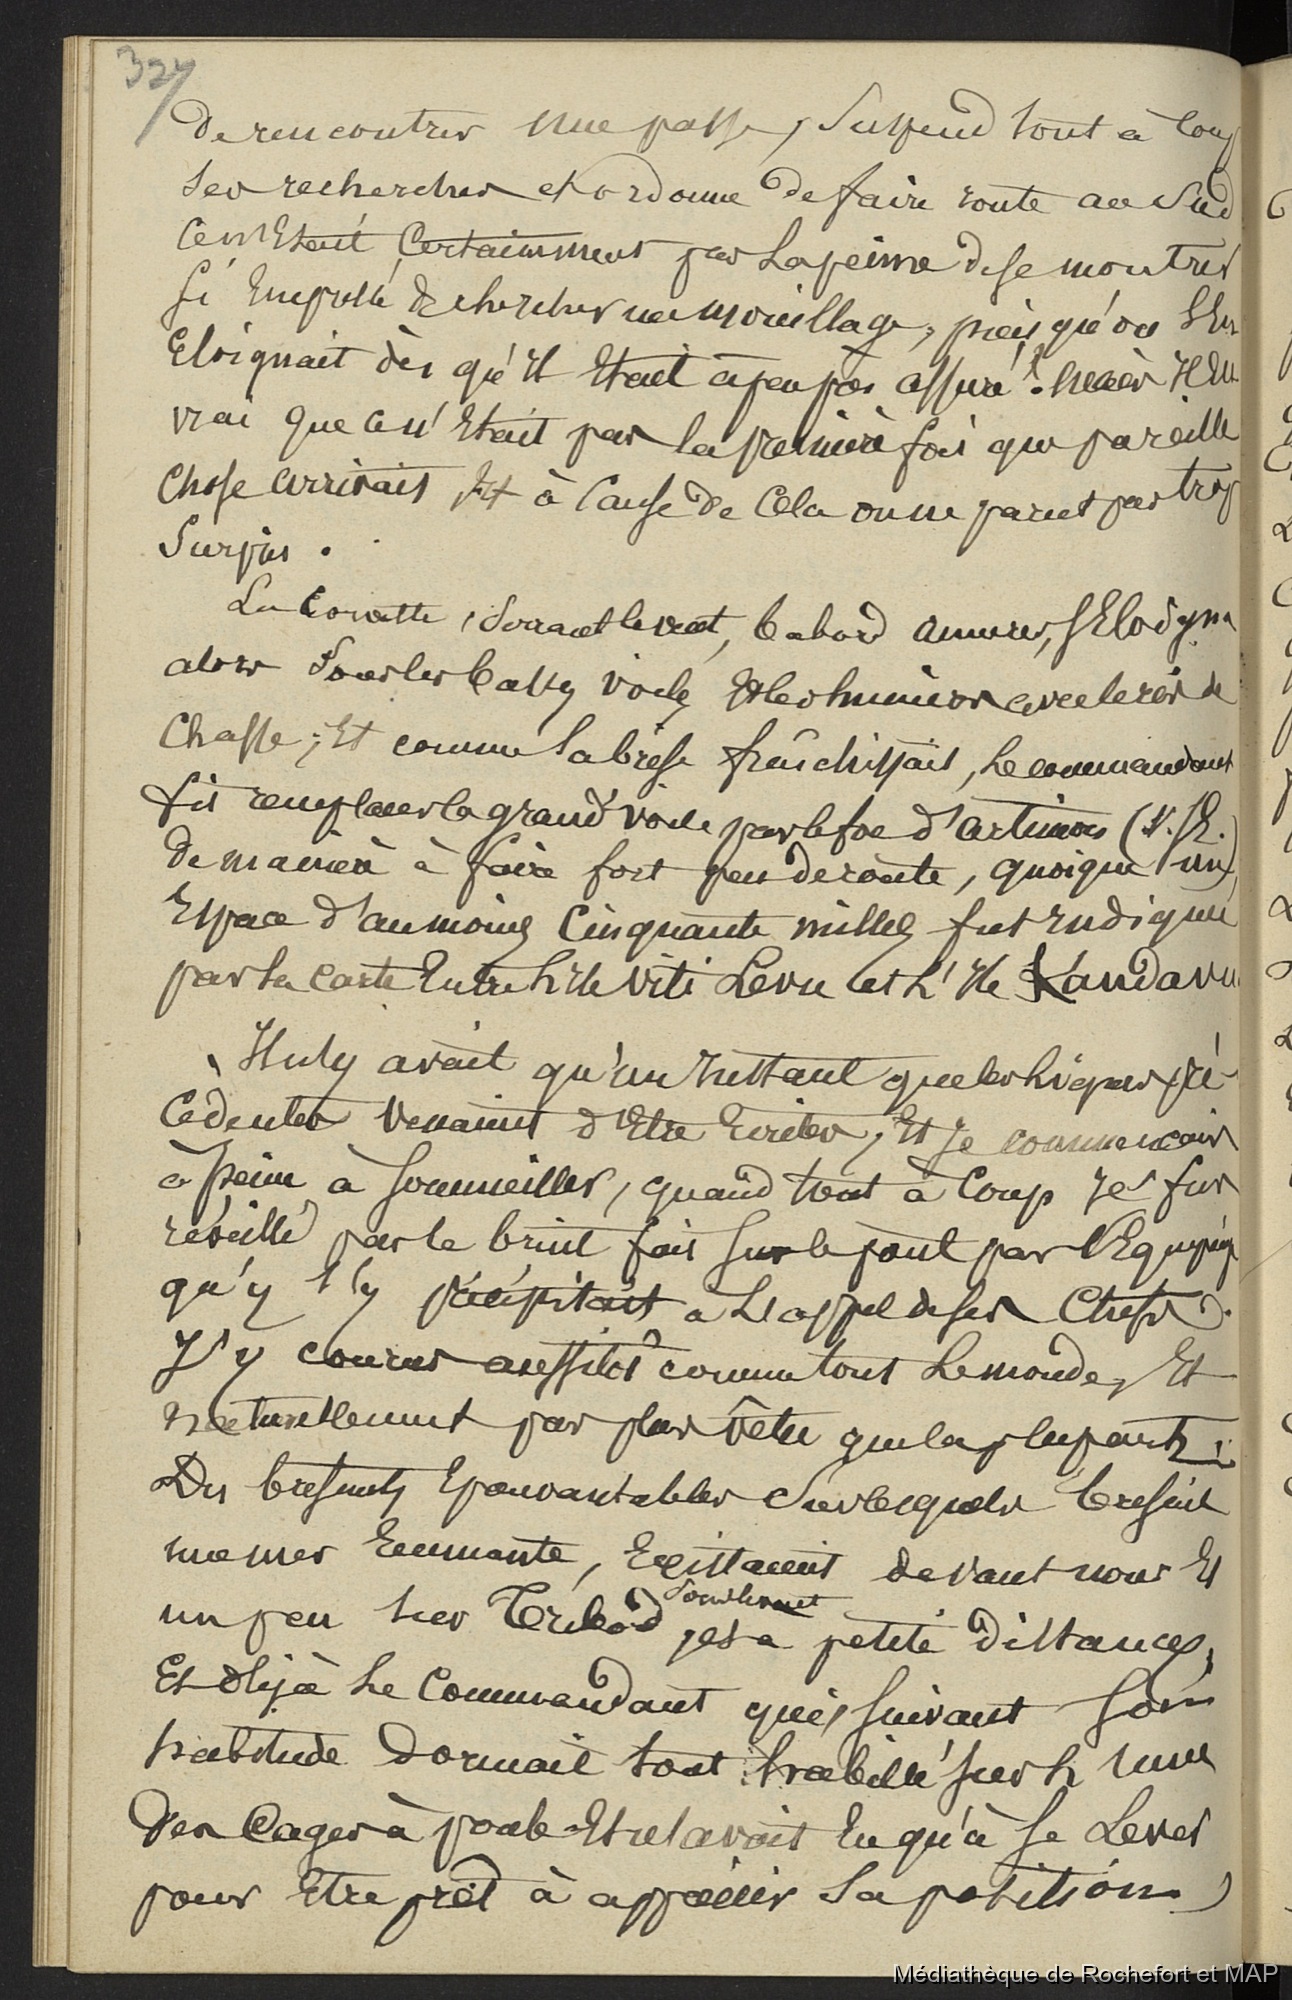 327
de rencontrer une passe, suspend tout à coup
ses recherches et ordonne de faire route au Sud
Ce n'Etait Certainement pas La peine de se montrer
si Empressé de chercher un mouillage, puisqu'on s'En
Eloignait dès qu'il Etait à peu près assuré. mais Il Est
vrai que ce n'Etait pas la première fois que pareille
chose arrivait Et à cause de Cela on ne parut pas trop
Surpris.
La Corvette, serrant le vent, babord amures, s'Eloigna
alors sous les basses voiles Et les huniers avec le ris de
chasse; Et comme la brise fraîchissait, Le commandant
fit remplacer la grand'voile par le foc d'artimon (v. S.E.)
de manière à faire fort peu de route, quoique un
Espace d'au moins cinquante milles fut Indiqué
par la carte Entre L'Ile Viti Levu et L'Ile Kandavu
Il n'y avait qu'un Instant que les Lignes pré-
cédentes venaient d'Etre Ecrites, Et Je commençais
à peine à sommeiller, quand tout à coup Je fus
réveillé par le bruit fait sur le pont par l'Equipage
qu'y s'y précipitait à L'appel de ses Chefs.
J'y courus aussitôt comme tout Le monde, Et
naturellement pas plus vêtu que la plupart:
Des brisants Epouvantables sur lesquels brisait
une mer Enorme, Existaient devant nous Et
un peu sur Tribord sous le vent, et à petite distance,
Et déjà Le Commandant qui, suivant son
habitude dormait tout habillé sur L'une
des Cages à poule Et n'avait Eu qu'à se Lever
pour Etre prêt à apprécier La position
Médiathèque de Rochefort et MAP